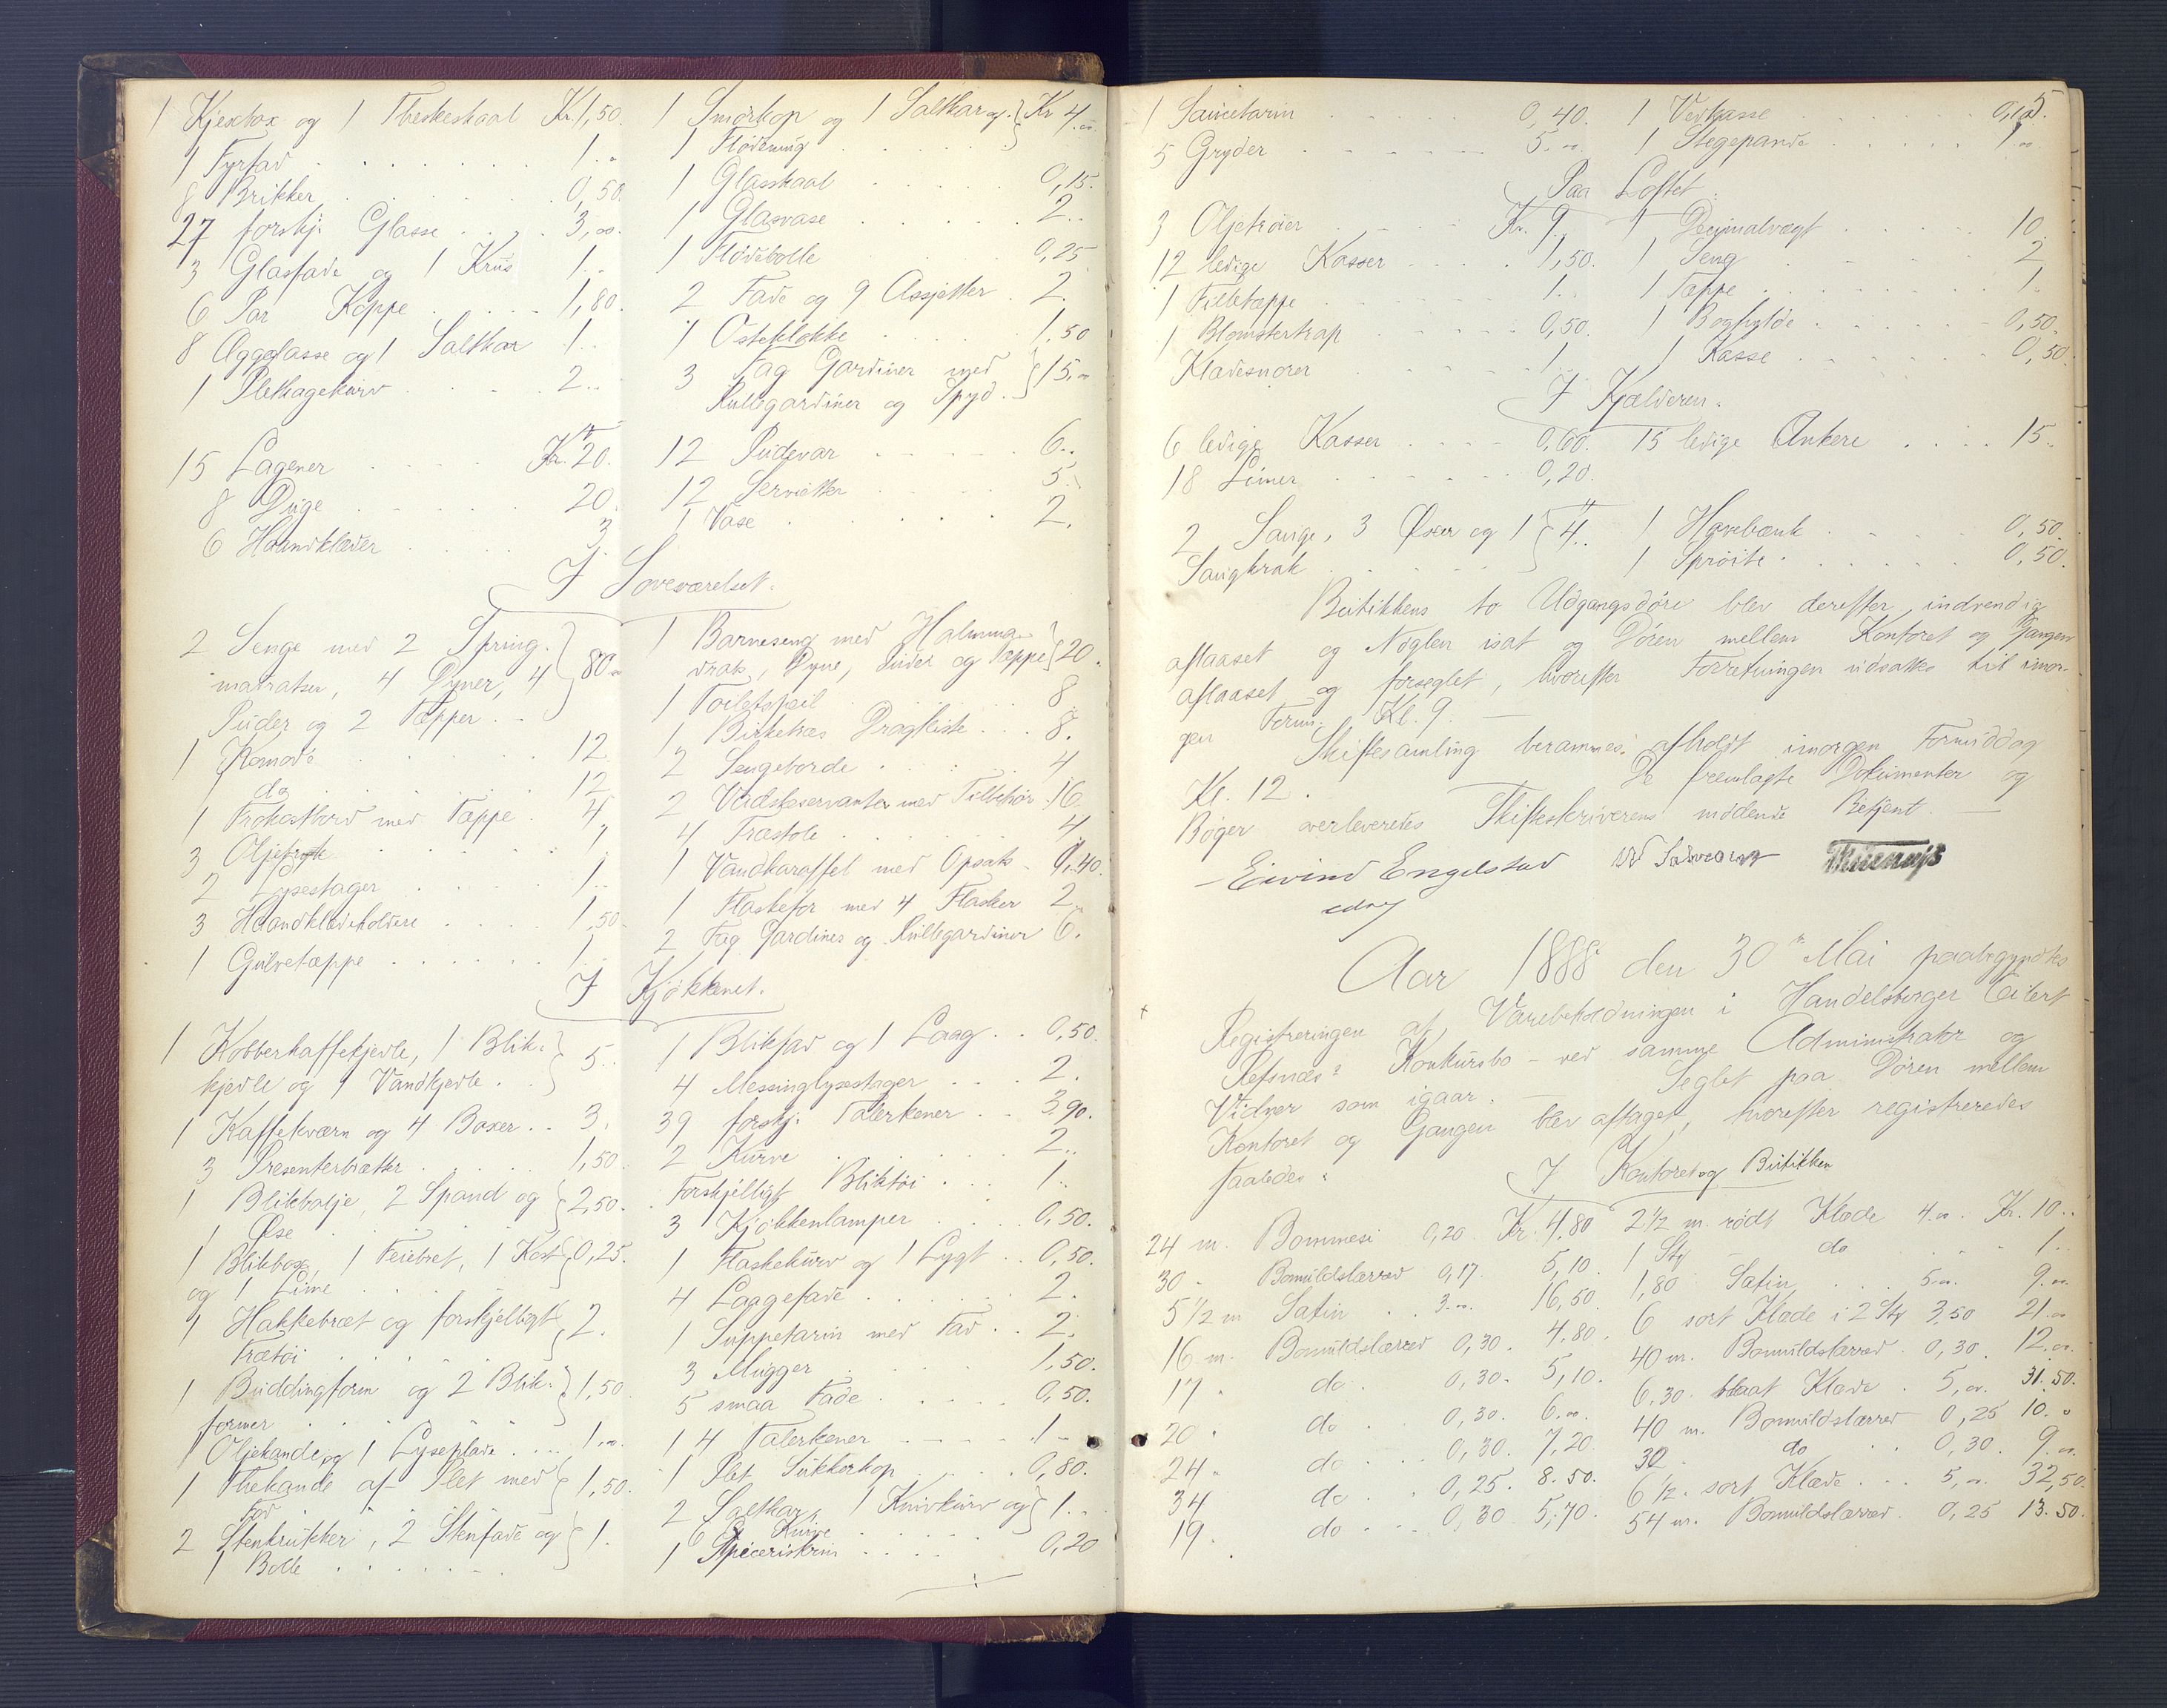 1 Kjexbox og 1 Theskeskaal Kr. 1,50.
1 Fyrfad . . . 1 . "
8 Brikker . . . 0,50.
27 forskj. Glasse . . . 3,00.
3 Glasfade og 1 Krus 1 . .
6 Par Koppe . . . 1,80.
8 Æggeglasse og 1 Saltkar 1 . .
1 Pletkagekurv . . . 2 . .
15 Lagener . . . Kr. 20.
8 Duge . . . 20.
6 Haandklæder . . . 3.
1 Smörkop og 1 Saltkar og } Kr 4.00
1 Flödemug . . .
1 Glasskaal . . . 0,15.
1 Glasvase . . . 2 . .
1 Flödebolle 0,25
2 Fade og 9 Assjetter . 2.
1 Osteklokke . . . 1,50
3 Fag Gardiner med } 15.00
Rullegardiner og Spyd.
12 Pudevar . . . 6 . .
12 Servietter . . . 5 .
1 Vase . . . 2.
I Soveværelset.
2 Senge med 2 Spring- } 80.00
matratser, 4 Dyner, 4
Puder og 2 Tæpper . -
1 Komode . . . 12.
1 do . . . 12.
1 Frokostbord med Tæppe . 4.
3 Oljetryk . . . 1
2 Lysestager . . . 1 . .
3 Haandklædeholdere . . . 1,50.
1 Gulvetæppe . . . 1 . .
1 Barneseng med Halmma- } 20.
drats, Dyne, Puder og Tæppe
1 Toiletspeil . . . 8
1 Birketræs Dragkiste . . . 8.
2 Sengeborde . . . 4
2 Vadskeservanter med Tilbehör . 16.
4 Træstole . . . 4
1 Vandkaraffel med Opsats - 0,40.
1 Flaskefor med 4 Flasker 2 . "
2 Fag Gardiner og Rullegardiner 6.
I Kjökkenet.
1 Kobberkaffekjedle, 1 Blik- } 5 . .
kjedle og 1 Vandkjedle .
1 Kaffekværn og 4 Boxer . . 3.
3 Presenterbrætter . . . 1,50.
1 Blikbalje, 2 Spand og } 2,50.
1 Øse .
1 Blikbox, 1 Feiebret, 1 Kost } 0,25.
og 1 Lime . . .
1 Hakkebræt og forskjelligt } 2.
Trætöi . . .
1 Buddingform og 2 Blik- } 1,50
former . . .
1 Oljekande og 1 Lyseplade . . . 1.00.
1 Thekande af Plet med } 1,50.
Fad . . .
2 Stenkrukker, 2 Stenfade og } 1.
1 Bolle . . .
1 Blikfad og 1 Laag . . 0,50.
4 Messinglysestager . . . 2.
39 forskj. Talerkener . . 3,90.
2 Kurve . . . 2 . .
Forskjelligt Bliktöi . . . 1 . .
3 Kjökkenlamper . . . 0,50.
1 Flaskekurv og 1 Lygt . 0,50.
4 Laagefade . . . 2.
1 Suppeterin med Fad . . 2.
3 Mugger . . . 1,50.
5 smaa Fade . . . 0,50.
14 Talerkener . . . 1 -
1 Plet Sukkerkop . . . 0,80.
2 Saltkar, 1 Knivkurv og } 1 . .
6 Knive . . .
1 Speceriskrin . . . 0,20
5
1 Saucetarin . . . 0,40.
5 Gryder . . . 5.00.
1 Vedkasse . . . 0,10.
1 Stegepande . . . 1.00
Paa Loftet.
3 Oljetröier . . . Kr. 9. .
12 ledige Kasser . . . 1,50.
1 Filletæppe . . . 1 . .
1 Blomstertrap . . . 0,50.
Klædesnorer . . . 1
1 Decimalvægt . . . 10.
1 Seng . . . 2
1 Tæppe . . . 1.
1 Boghylde . . . 0,50.
1 Kasse . . . 0,50.
I Kjælderen.
6 ledige Kasser . . . 0,60.
18 Limer . . . 0,20.
15 ledige Ankere . . . 15 . .
2 Sauge, 3 Øxer og 1 } 4 . .
Saugkrak . . .
1 Havebænk . . . 0,50.
1 Spröite . . . 0,50.
Butikkens to Udgangsdöre blev derefter indvendig
aflaaset og Nöglen isat og Dören mellem Kontoret og Gangen
aflaaset og forseglet, hvorefter Forretningen udsattes til imor-
gen Form. Kl. 9. —
Skiftesamling berammes afholdt imorgen Formiddag
Kl. 12. De fremlagte Dokumenter og
Böger overleveredes Skifteskriverens mödende Betjent. —
Eivind Engelstad
Aar 1888 den 30te Mai paabegyndtes
Registreringen af Varebeholdningen i Handelsborger Eilert
Refsnæs's Konkursbo - ved samme Administrator og
Vidner som igaar. — Seglet paa Dören mellem
Kontoret og Gangen blev aftaget, hvorefter registreredes
saaledes:
I Kontoret og Butikken
24 m. Bommesi 0,20. Kr. 4,80
30 " Bomuldslærred 0,17. 5,10.
5 1/2 m Satin . . 3.00. 16,50.
16 m. Bomuldslærred 0,30. 4,80.
17 " do . 0,30. 5,10.
20 " do . 0,30. 6.00.
24 " do . . 0,30. 7,20.
34 do . . 0,25. 8.50.
19 " do . . . 0,30 5,70.
2 1/2 m. rödt Klæde 4.00. Kr. 10 . .
1 Sty - do . . . 1 . .
1,80 Satin . . . 5.00. 9.00.
6 sort Klæde i 2 Sty 3,50 21.00
40 m. Bomuldslærred . 0,30. 12.00.
6,30. blaat Klæde . 5,00. 31.50.
40 m. Bomuldslærred 0,25 10. "
30 do . . 0,30. 9.00.
6 1/2 " sort Klæde . . . 5,00. 32,50.
54 m. Bomuldslærred . 0,25 13.50.